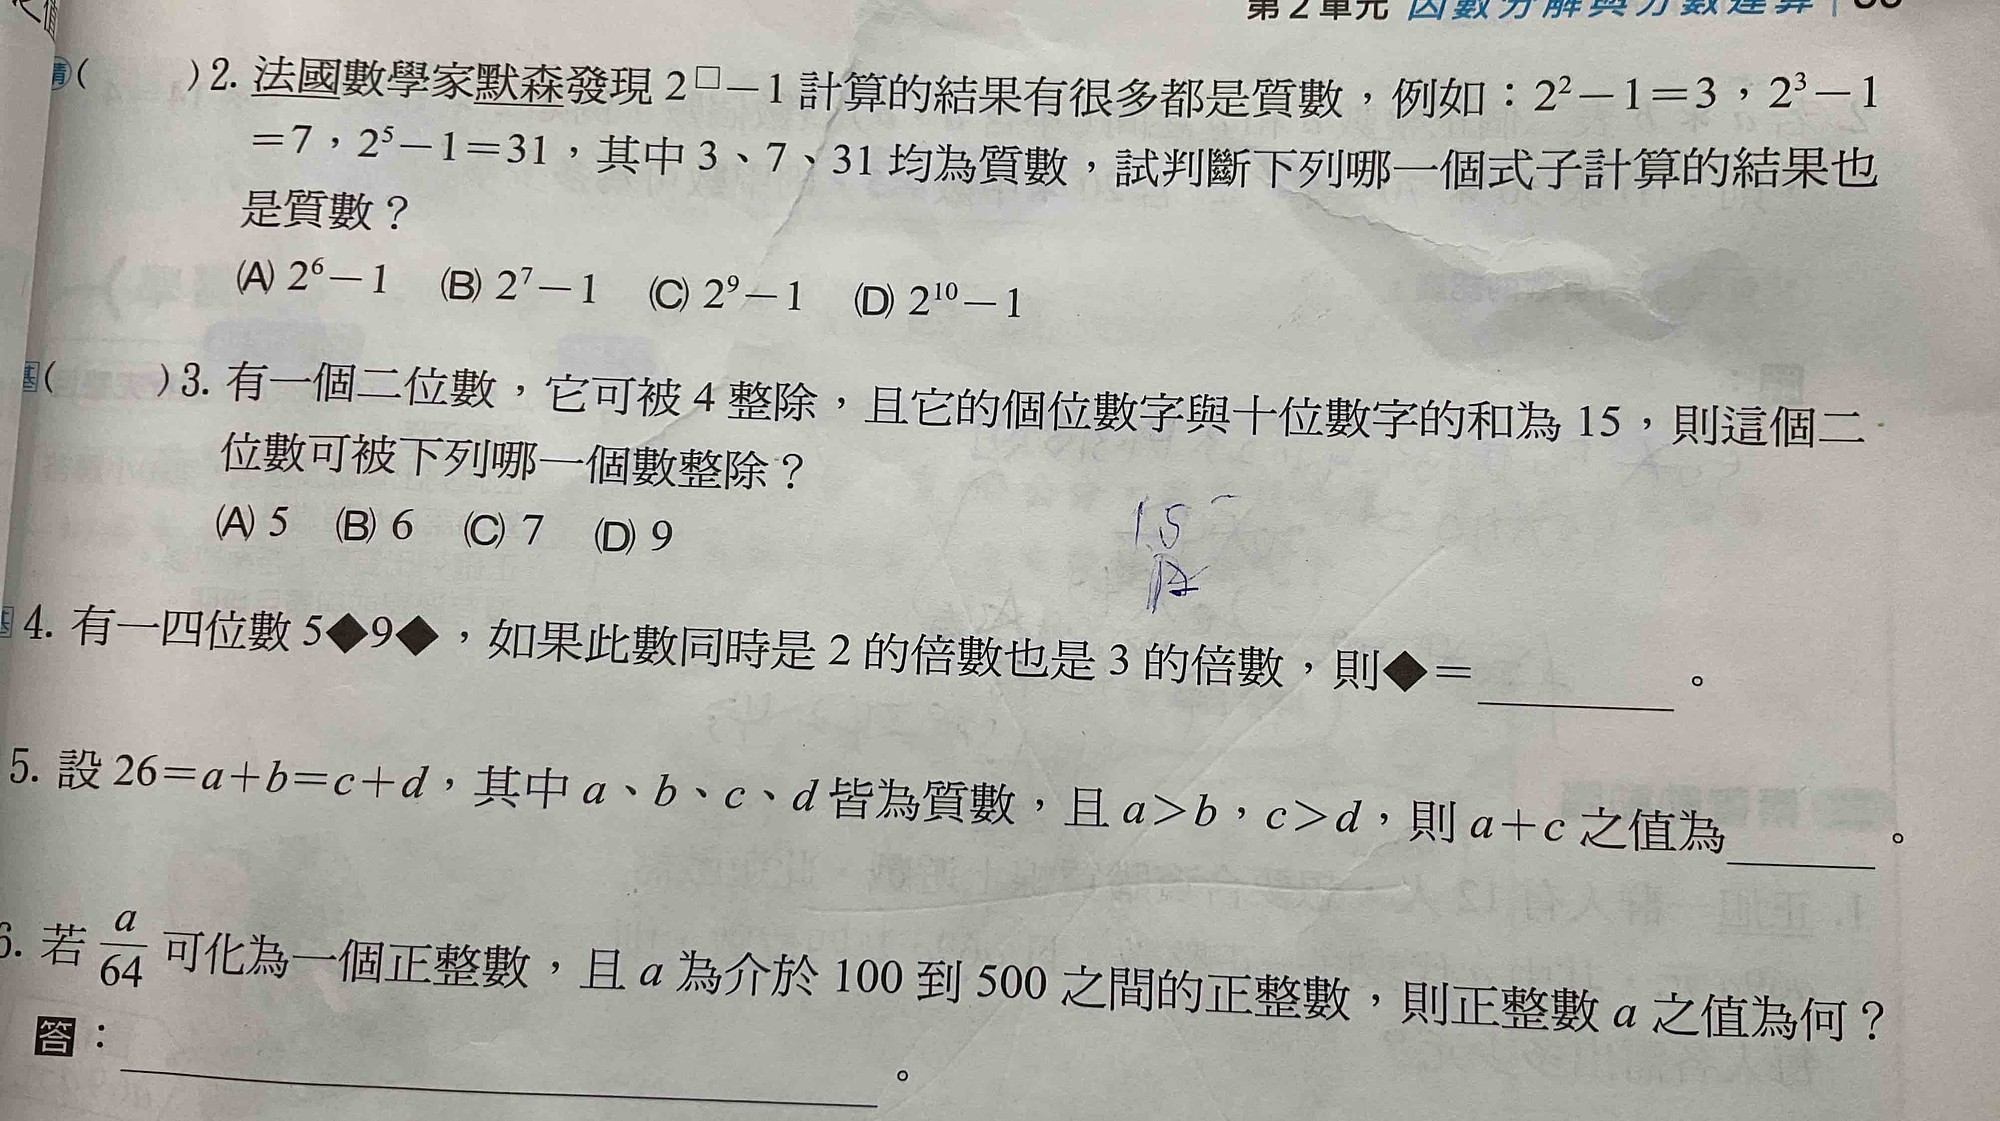 第2單元 因數分解與分數運算
之值
精( )2. 法國數學家默森發現 2^□－1 計算的結果有很多都是質數，例如：2²－1＝3，2³－1
＝7，2⁵－1＝31，其中 3、7、31 均為質數，試判斷下列哪一個式子計算的結果也
是質數？
(A) 2⁶－1 (B) 2⁷－1 (C) 2⁹－1 (D) 2¹⁰－1
基( )3. 有一個二位數，它可被 4 整除，且它的個位數字與十位數字的和為 15，則這個二
位數可被下列哪一個數整除？
(A) 5 (B) 6 (C) 7 (D) 9
15
基4. 有一四位數 5◆9◆，如果此數同時是 2 的倍數也是 3 的倍數，則◆＝______。
5. 設 26＝a＋b＝c＋d，其中 a、b、c、d 皆為質數，且 a＞b，c＞d，則 a＋c 之值為______。
6. 若 a/64 可化為一個正整數，且 a 為介於 100 到 500 之間的正整數，則正整數 a 之值為何？
答：______。